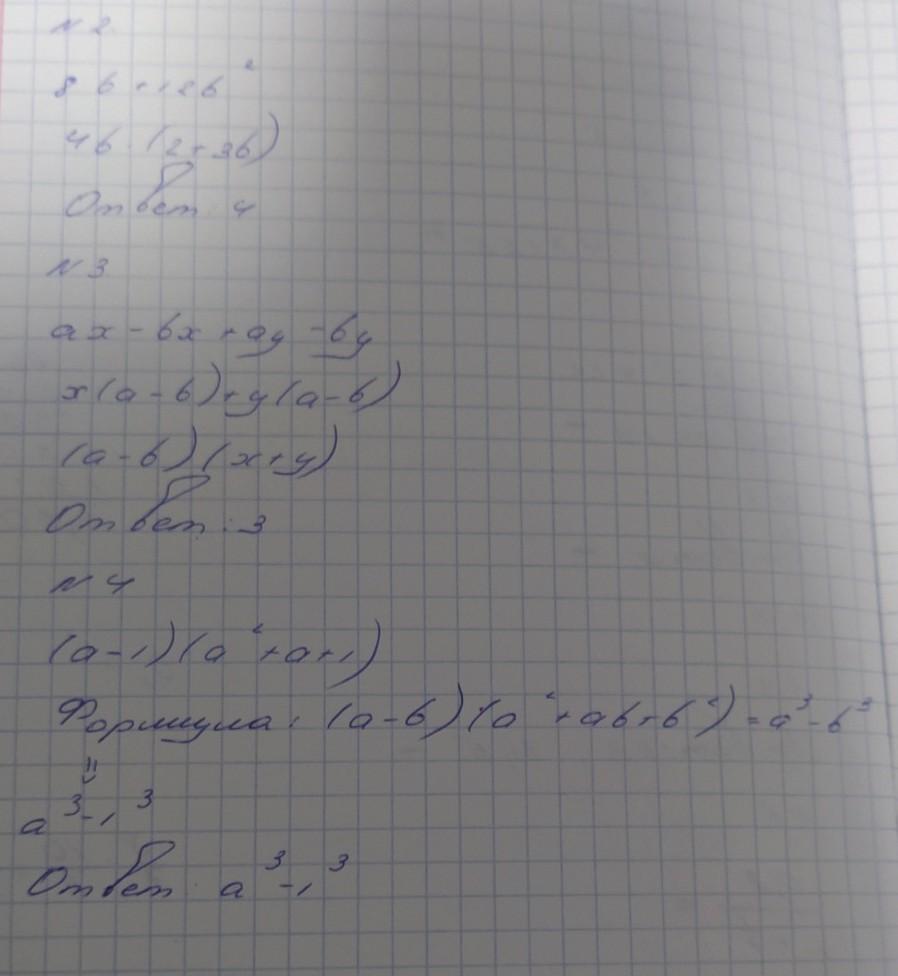 N 2
8b + 12b²
4b · (2 + 3b)
Ответ: 4
N 3
ax - bx + ay - by
x(a - b) + y(a - b)
(a - b)(x + y)
Ответ: 3
N 4
(a - 1)(a² + a + 1)
Формула: (a - b)·(a² + ab + b²) = a³ - b³
=
a³ - 1³
Ответ: a³ - 1³